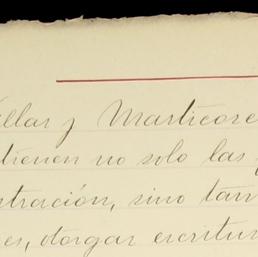 llar y Marticore
tienen no solo las
stración, sino tan
es, otorgar escritur